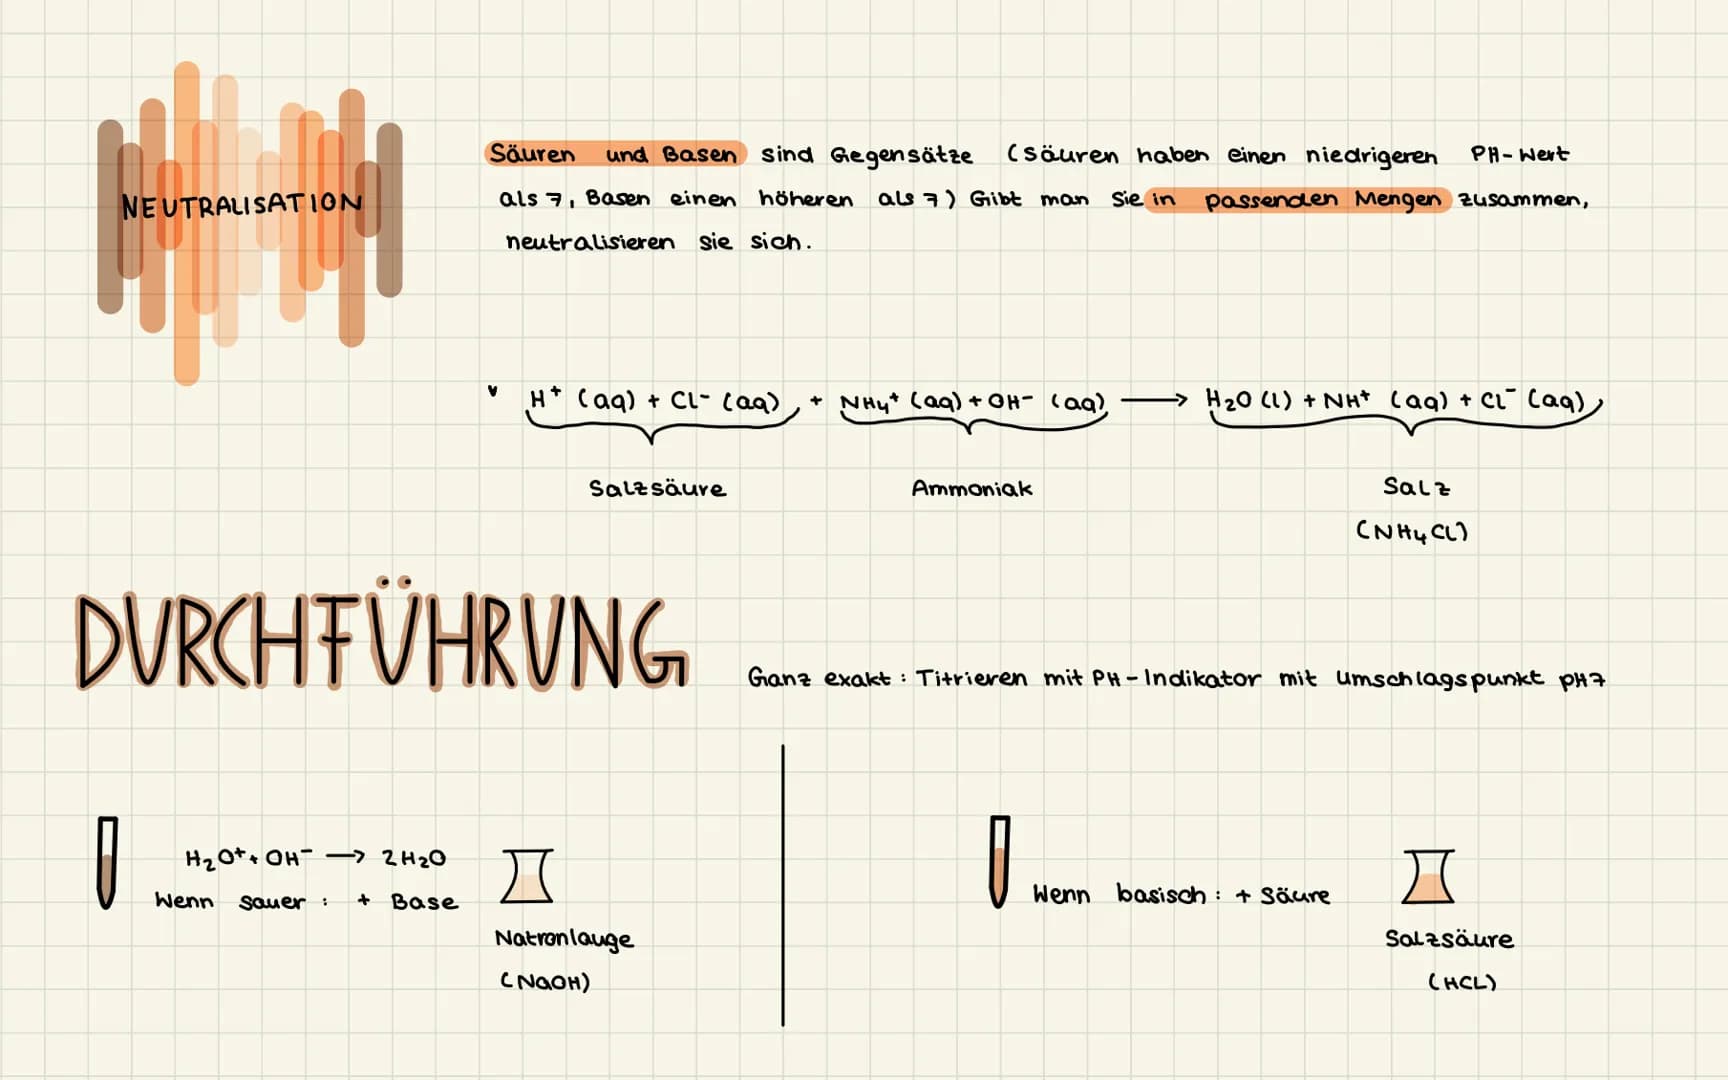 NEUTRALISATION
Säuren und Basen sind Gegensätze (Säuren haben einen niedrigeren PH-Wert
als 7, Basen einen höheren als 7) Gibt man Sie in passenden Mengen zusammen,
neutralisieren sie sich.
H⁺ (aq) + Cl⁻ (aq) + NH₄⁺ (aq) + OH⁻ (aq) ⟶ H₂O (l) + NH⁺ (aq) + Cl⁻ (aq)
Salzsäure Ammoniak Salz
(NH₄Cl)
DURCHFÜHRUNG
Ganz exakt: Titrieren mit PH-Indikator mit Umschlagspunkt pH7
H₂O⁺ + OH⁻ ⟶ 2H₂O
Wenn sauer: + Base
Natronlauge
(NaOH)
Wenn basisch: + Säure
Salzsäure
(HCL)